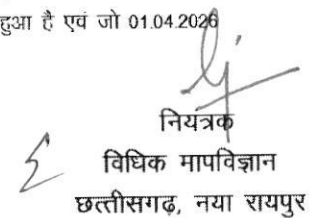 हुआ है एवं जो 01.04.2026
नियंत्रक
विधिक मापविज्ञान
छत्तीसगढ़, नया रायपुर